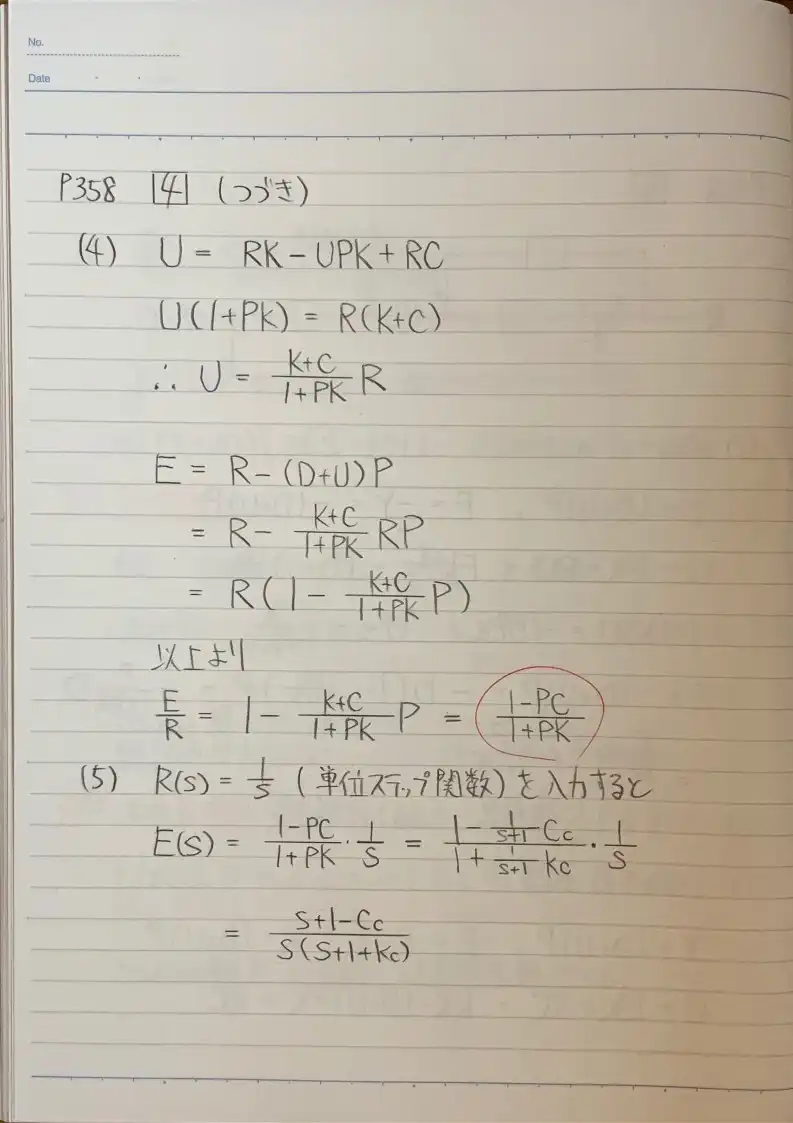 No.
Date
P358 4 (つづき)
(4) U = RK − UPK + RC
U(1+PK) = R(K+C)
∴ U = \frac{K+C}{1+PK} R
E = R − (D+U)P
= R − \frac{K+C}{1+PK} RP
= R(1 − \frac{K+C}{1+PK} P)
以上より
\frac{E}{R} = 1 − \frac{K+C}{1+PK} P = \frac{1−PC}{1+PK}
(5) R(s) = \frac{1}{s} (単位ステップ関数)を入力すると
E(s) = \frac{1−PC}{1+PK} · \frac{1}{s} = \frac{1−\frac{1}{s+1}Cc}{1+\frac{1}{s+1}kc} · \frac{1}{s}
= \frac{s+1−Cc}{s(s+1+kc)}